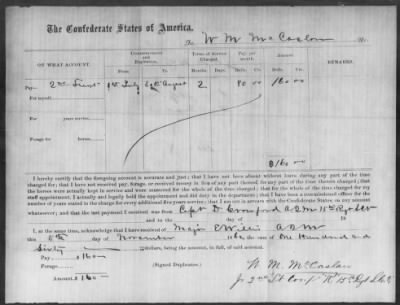 The Confederate States of America,
To W. M. McCaslan Dr.
ON WHAT ACCOUNT. Commencement and Expiration. Term of Service Charged. Pay per month. Amount REMARKS.
From To Months. Days. Dols. Cts. Dols. Cts.
Pay— 2nd Lieut 1st July August 2 80 00 160 00
For myself
For years service
Forage for horses
$160 00
I hereby certify that the foregoing account is accurate and just; that I have not been absent without leave during any part of the
time charged for; that I have not received pay, forage, or received money in lieu of any part thereof, for any part of the time therein charged; that
the horses were actually kept in service and were mustered for the whole of the time charged; that for the whole of the time charged for my
staff appointment, I actually and legally held the appointment and did duty in the department; that I have been a commissioned officer for the
number of years stated in the charge for every additional five years service; that I am not in arrears with the Confederate States on any account
whatsoever; and that the last payment I received was from Capt D Crawford A Q M
and to the day of 18
I, at the same time, acknowledge that I have received of Major Willis A Q M
this day of November 186 the sum of One Hundred and
Sixty dollars, being the amount, in full, of said account.
Pay $160
Forage
Amount $160 (Signed Duplicates.)
W. M. McCaslan
2nd Lt Co